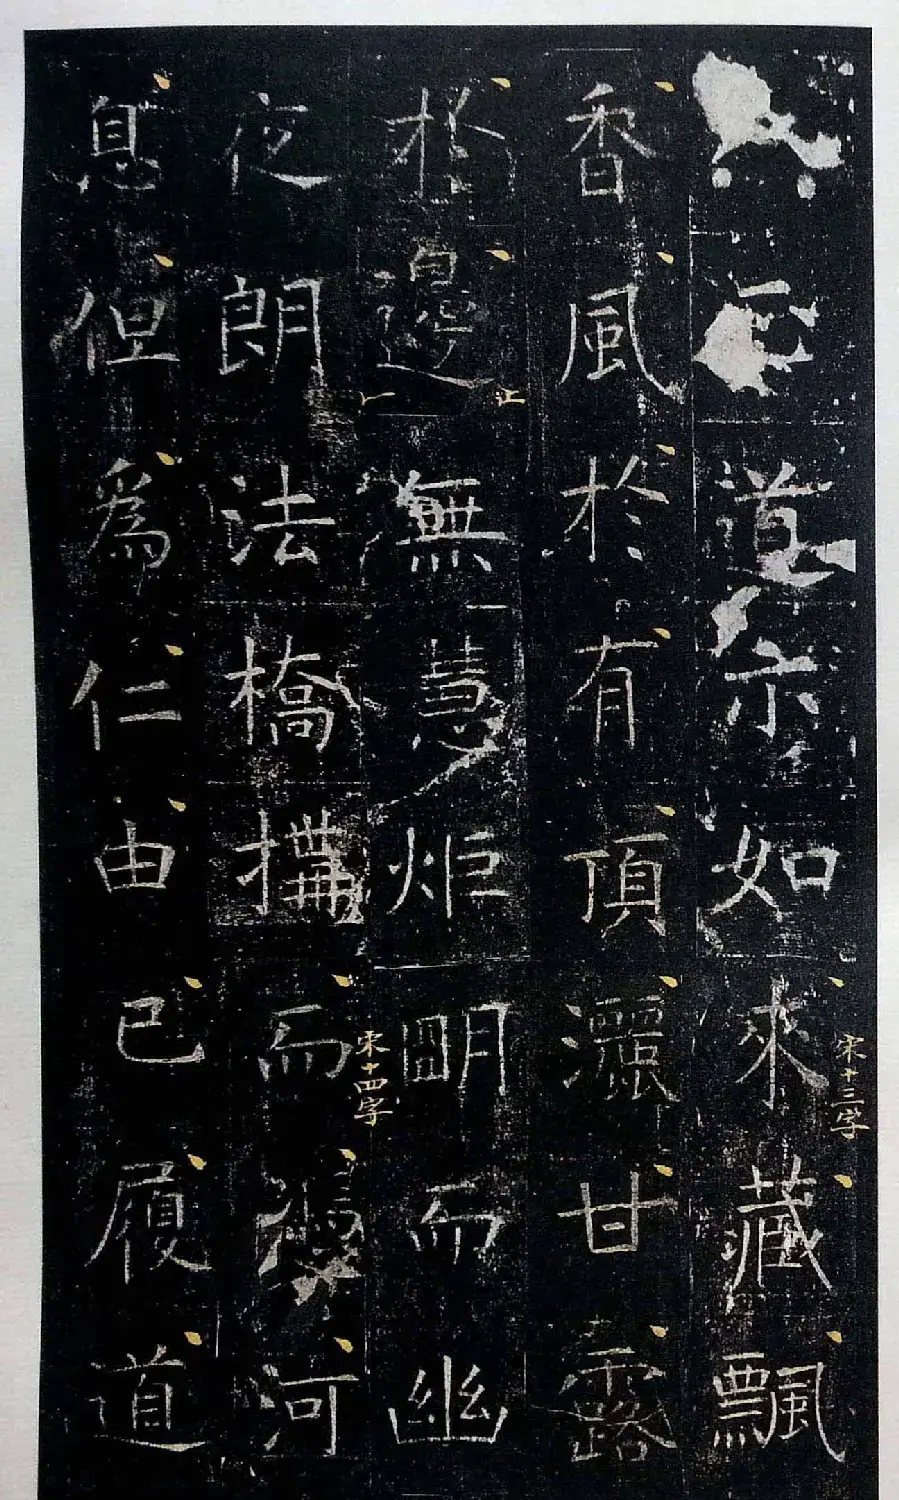 道示如來藏飄
香風於有頂灑甘露
於邊無慧炬明而幽
夜朗法橋搆而河
息但為仁由己履道
宋十三字
宋十四字